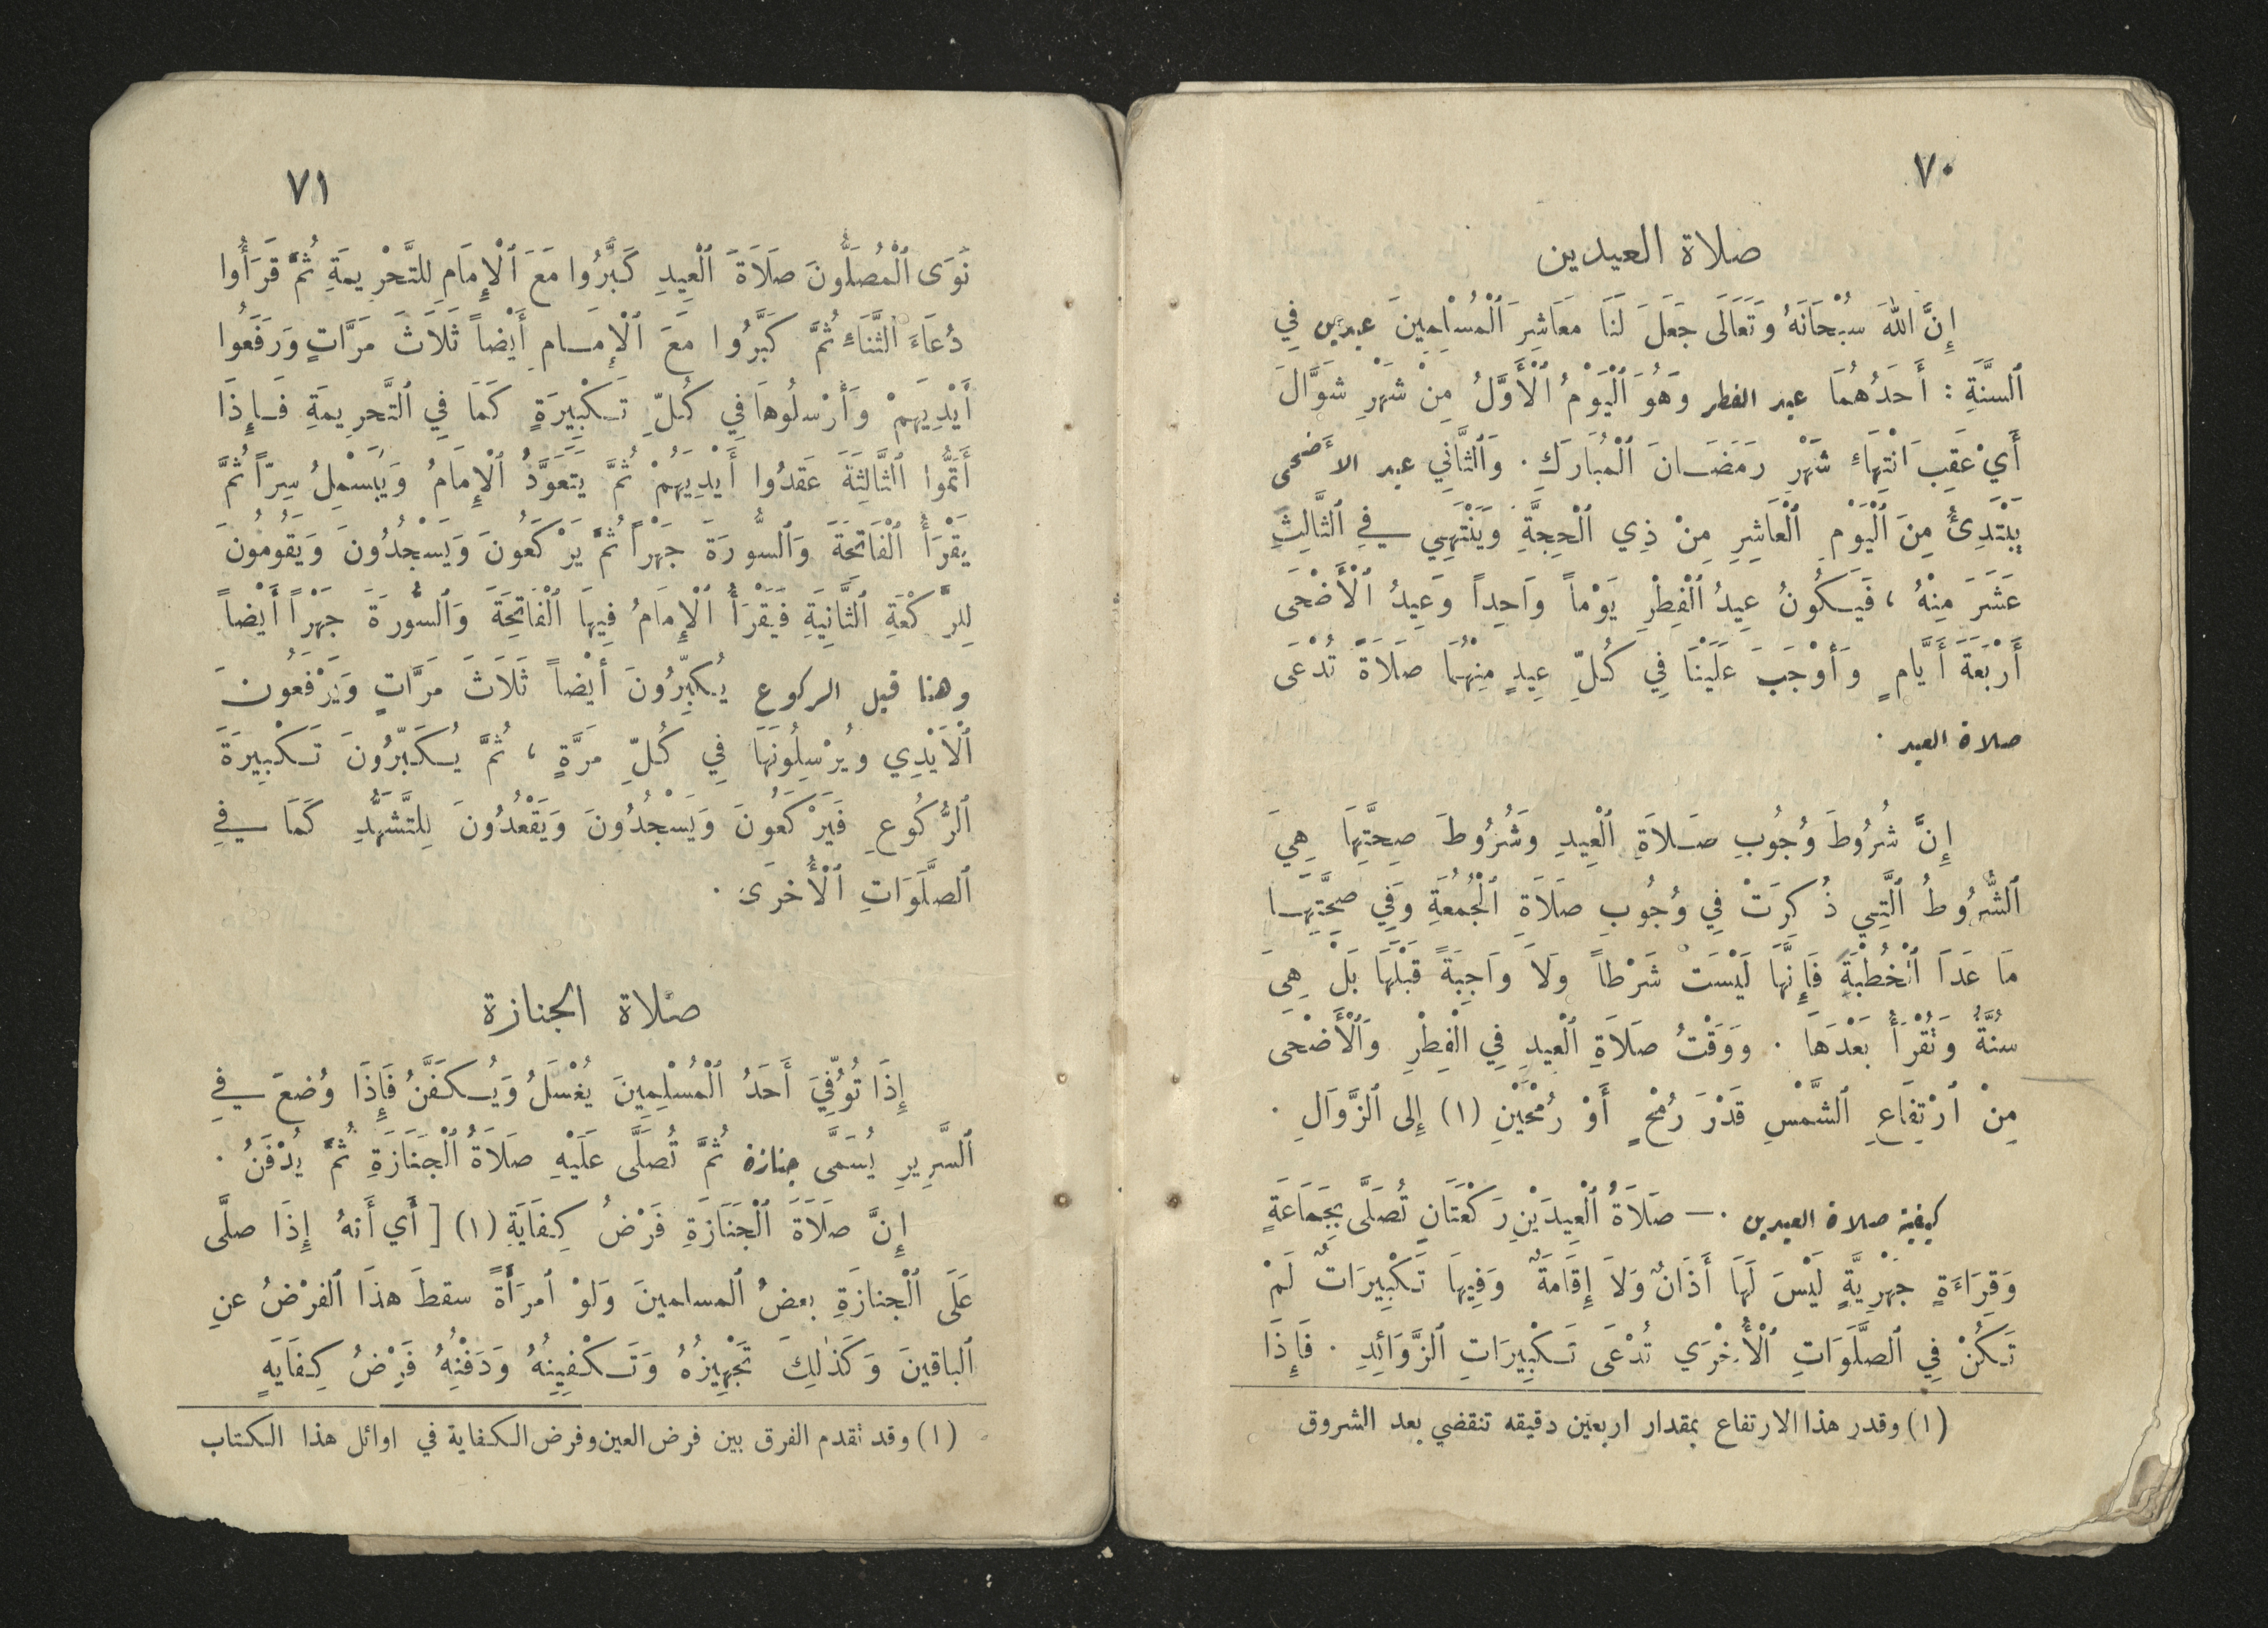 ٧٠
صلاة العيدين
إِنَّ اللهَ سُبْحَانَهُ وَتَعَالَى جَعَلَ لَنَا مَعَاشِرَ ٱلْمُسْلِمِينَ عيدين فِي
ٱلسَّنَةِ : أَحَدُهُمَا عيد الفطر وَهُوَ ٱلْيَوْمُ ٱلْأَوَّلُ مِنْ شَهْرِ شَوَّالَ
أَيْ عَقِبَ ٱنْتِهَاءِ شَهْرِ رَمَضَانَ ٱلْمُبَارَكِ . وَٱلثَّانِي عيد الأضحى
يَبْتَدِئُ مِنَ ٱلْيَوْمِ ٱلْعَاشِرِ مِنْ ذِي ٱلْحِجَّةِ وَيَنْتَهِي فِي ٱلثَّالِثِ
عَشَرَ مِنْهُ ، فَيَكُونُ عِيدُ ٱلْفِطْرِ يَوْماً وَاحِداً وَعِيدُ ٱلْأَضْحَى
أَرْبَعَةَ أَيَّامٍ وَأَوْجَبَ عَلَيْنَا فِي كُلِّ عِيدٍ مِنْهُمَا صَلَاةً تُدْعَى
صلاة العيد .
إِنَّ شُرُوطَ وُجُوبِ صَلَاةِ ٱلْعِيدِ وَشُرُوطَ صِحَّتِهَا هِيَ
ٱلشُّرُوطُ ٱلَّتِي ذُكِرَتْ فِي وُجُوبِ صَلَاةِ ٱلْجُمُعَةِ وَفِي صِحَّتِهَا
مَا عَدَا ٱلْخُطْبَةَ فَإِنَّهَا لَيْسَتْ شَرْطاً وَلَا وَاجِبَةً قَبْلَهَا بَلْ هِيَ
سُنَّةٌ وَتُقْرَأُ بَعْدَهَا . وَوَقْتُ صَلَاةِ ٱلْعِيدِ فِي ٱلْفِطْرِ وَٱلْأَضْحَى
مِنْ ٱرْتِفَاعِ ٱلشَّمْسِ قَدْرَ رُمْحٍ أَوْ رُمْحَيْنِ (١) إِلى ٱلزَّوَالِ .
كيفية صلاة العيدين . — صَلَاةُ ٱلْعِيدَيْنِ رَكْعَتَانِ تُصَلَّى بِجَمَاعَةٍ
وَقِرَاءَةٍ جَهْرِيَّةٍ لَيْسَ لَهَا أَذَانٌ وَلَا إِقَامَةٌ وَفِيهَا تَكْبِيرَاتٌ لَمْ
تَكُنْ فِي ٱلصَّلَوَاتِ ٱلْأُخْرَي تُدْعَى تَكْبِيرَاتِ ٱلزَّوَائِدِ . فَإِذَا
(١) وقدر هذا الارتفاع بمقدار اربعين دقيقه تنقضي بعد الشروق
٧١
نَوَى ٱلْمُصَلُّونَ صَلَاةَ ٱلْعِيدِ كَبَّرُوا مَعَ ٱلْإِمَامِ لِلتَّحْرِيمَةِ ثُمَّ قَرَأُوا
دُعَاءَ ٱلثَّنَاءِ ثُمَّ كَبَّرُوا مَعَ ٱلْإِمَامِ أَيْضاً ثَلَاثَ مَرَّاتٍ وَرَفَعُوا
أَيْدِيَهِمْ وَأَرْسَلُوهَا فِي كُلِّ تَكْبِيرَةٍ كَمَا فِي ٱلتَّحْرِيمَةِ فَإِذَا
أَتَمُّوا ٱلثَّالِثَةَ عَقَدُوا أَيْدِيَهُمْ ثُمَّ يَتَعَوَّذُ ٱلْإِمَامُ وَيُبَسْمِلُ سِرّاً ثُمَّ
يَقْرَأُ ٱلْفَاتِحَةَ وَٱلسُّورَةَ جَهْراً ثُمَّ يَرْكَعُونَ وَيَسْجُدُونَ وَيَقُومُونَ
لِلرَّكْعَةِ ٱلثَّانِيَةِ فَيَقْرَأُ ٱلْإِمَامُ فِيهَا ٱلْفَاتِحَةَ وَٱلسُّورَةَ جَهْراً أَيْضاً
وهنا قبل الركوع يُكَبِّرُونَ أَيْضاً ثَلَاثَ مَرَّاتٍ وَيَرْفَعُونَ
ٱلْأَيْدِي وَيُرْسِلُونَهَا فِي كُلِّ مَرَّةٍ ، ثُمَّ يُكَبِّرُونَ تَكْبِيرَةَ
ٱلرُّكُوعِ فَيَرْكَعُونَ وَيَسْجُدُونَ وَيَقْعُدُونَ لِلتَّشَهُّدِ كَمَا فِي
ٱلصَّلَوَاتِ ٱلْأُخرَى .
صلاة الجنازة
إِذَا تُوُفِّيَ أَحَدُ ٱلْمُسْلِمِينَ يُغْسَلُ وَيُكَفَّنُ فَإِذَا وُضِعَ فِي
ٱلسَّرِيرِ يُسَمَّى جنازة ثُمَّ تُصَلَّى عَلَيْهِ صَلَاةُ ٱلْجَنَازَةِ ثُمَّ يُدْفَنُ .
إِنَّ صَلَاةَ ٱلْجَنَازَةِ فَرْضُ كِفَايَةٍ (١) [ أَي أَنهُ إِذَا صلَّى
عَلَى ٱلْجنازَةِ بعضُ ٱلمسلمينَ وَلَوْ ٱمرَأَةً سقطَ هذَا ٱلفرْضُ عنِ
ٱلباقينَ وَكَذٰلِكَ تَجْهِيزُهُ وَتَكْفِينُهُ وَدَفْنُهُ فَرْضُ كِفَايَةٍ
(١) وقد تقدم الفرق بين فرض العين وفرض الكفاية في اوائل هذا الكتاب